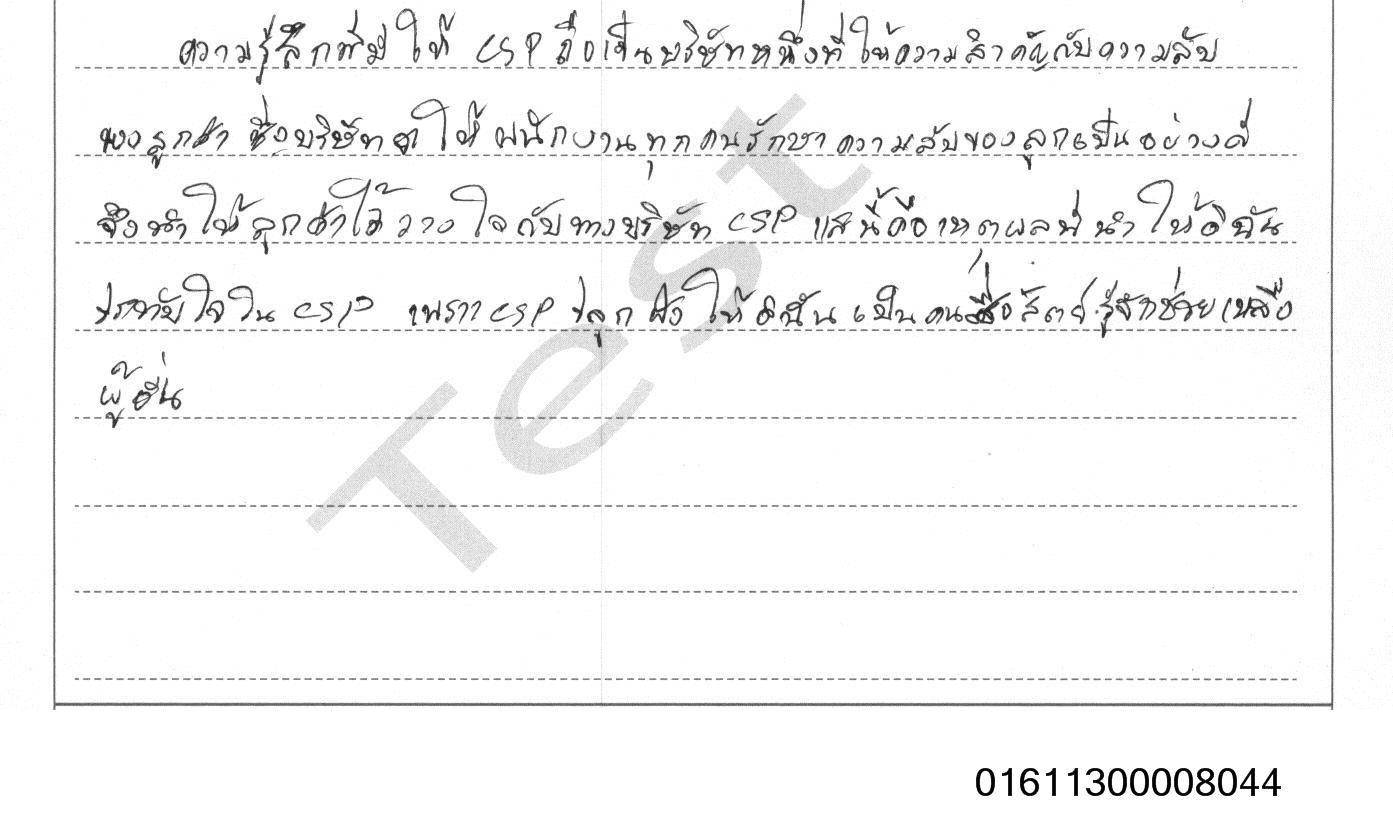 ความรู้สึกที่มีให้ CSP ถือเป็นบริษัทหนึ่งที่ให้ความสำคัญกับความลับ
ของลูกค้า ซึ่งบริษัท ให้พนักงานทุกคนรักษาความลับของลูกเป็นอย่างดี
จึงทำให้ลูกค้าไว้วางใจกับทางบริษัท CSP และนี้คือเหตุผลที่ทำให้ดิฉัน
ประทับใจใน CSP เพราะ CSP ปลูกฝังให้ดิฉันเป็นคนซื่อสัตย์ รู้จักช่วยเหลือ
ผู้อื่น
Test
01611300008044